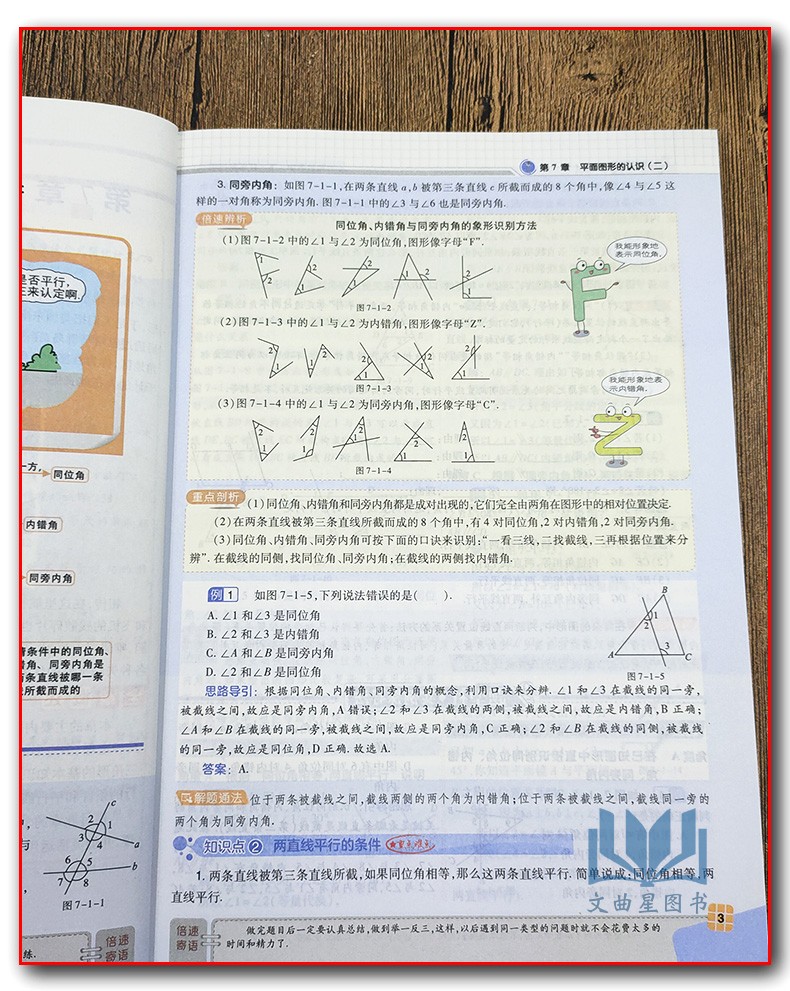 第7章
是否平行,
来认定啊.
一方,
同位角
内错角
同旁内角
条件中的同位角、
错角、同旁内角是
条直线被哪一条
所截而成的
c
2 1
3
4
a
6 5
7 8
b
图 7-1-1
练.
倍速
寄语
第7章 平面图形的认识(二)
3. 同旁内角: 如图 7-1-1,在两条直线 a,b 被第三条直线 c 所截而成的 8 个角中,像∠4 与∠5 这
样的一对角称为同旁内角. 图 7-1-1 中的∠3 与∠6 也是同旁内角.
倍速辨析
同位角、内错角与同旁内角的象形识别方法
(1)图 7-1-2 中的∠1 与∠2 为同位角,图形像字母“F”.
我能形象地
表示同位角.
1 2 1 2 1 2 1 2 1 2
图 7-1-2
(2)图 7-1-3 中的∠1 与∠2 为内错角,图形像字母“Z”.
2 1 2 1 2 1 2 1 2 1
图 7-1-3
我能形象地表
示内错角.
(3)图 7-1-4 中的∠1 与∠2 为同旁内角,图形像字母“C”.
2 1 2 1 2 1 2 1 2 1
图 7-1-4
重点剖析
(1)同位角、内错角和同旁内角都是成对出现的,它们完全由两角在图形中的相对位置决定.
(2)在两条直线被第三条直线所截而成的 8 个角中,有 4 对同位角,2 对内错角,2 对同旁内角.
(3)同位角、内错角、同旁内角可按下面的口诀来识别:“一看三线,二找截线,三再根据位置来分
辨”. 在截线的同侧,找同位角、同旁内角;在截线的两侧找内错角.
例 1 如图 7-1-5,下列说法错误的是( ).
A. ∠1 和∠3 是同位角
B. ∠2 和∠3 是内错角
C. ∠A 和∠B 是同旁内角
D. ∠2 和∠B 是同位角
B
1
2
3
A C
图 7-1-5
思路导引: 根据同位角、内错角、同旁内角的概念,利用口诀来分辨. ∠1 和∠3 在截线的同一旁,
被截线之间,故应是同旁内角,A 错误;∠2 和∠3 在截线的两侧,被截线之间,故应是内错角,B 正确;
∠A 和∠B 在截线的同一旁,被截线之间,故应是同旁内角,C 正确;∠2 和∠B 在截线的同侧,被截线
的同一旁,故应是同位角,D 正确. 故选 A.
答案: A.
解题通法 位于两条被截线之间,截线两侧的两个角为内错角;位于两条被截线之间,截线同一旁的
两个角为同旁内角.
知识点 2 两直线平行的条件 ★重点难点
1. 两条直线被第三条直线所截,如果同位角相等,那么这两条直线平行. 简单说成:同位角相等,两
直线平行.
文曲星图书
3
倍速
寄语
做完题目后一定要认真总结,做到举一反三,这样,以后遇到同一类型的问题时就不会花费太多的
时间和精力了.